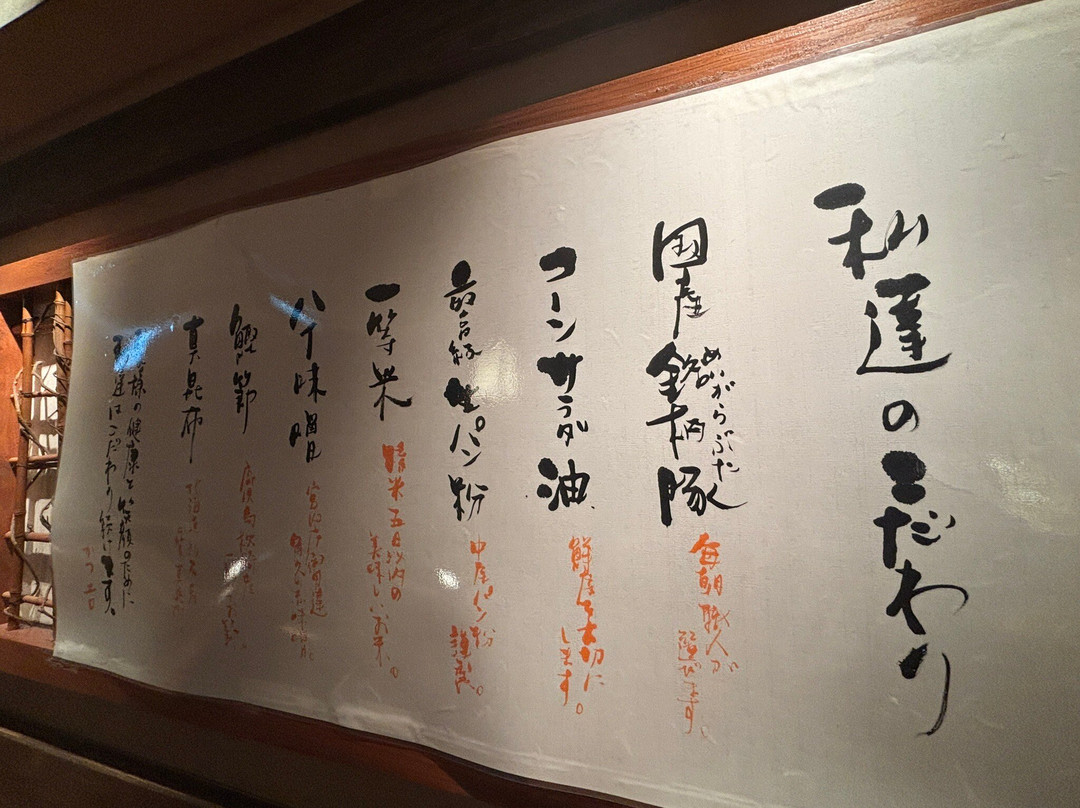 私達のこだわり
国産銘柄豚
めいがらぶた
毎朝職人が
選びます。
コーンサラダ油
鮮度を大切に
します。
最高級生パン粉
中屋パン粉
謹製。
一等米
精米五日以内の
美味しいお米。
八丁味噌
宮内庁御用達
鰹節
鹿児島
真昆布
北海道
お客様の健康と笑顔のために
私達はこだわり続けます。